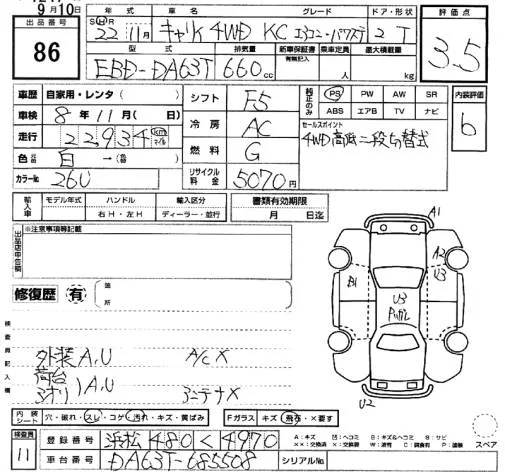 9月10日
出品番号 年式 車名 グレード ドア・形状 評価点
86 SH年 22 11月 キャリイ 4WD KC エアコン・パワステ 2 T 3.5
型式 排気量 新車保証書 乗車定員 最大積載量
有無記入
EBD-DA63T 660cc 人 kg
車歴 自家用・レンタ( ) シフト F5 純正のみ PS PW AW SR 内装評価
ABS エアB TV ナビ
車検 8年11月( 日) 冷房 AC セールスポイント 6
走行 22934 km マイル 4WD高低二段切替式
色 元色 白→(色替 ) 燃料 G
カラーNo 26U リサイクル料金 5070円
輸入車 モデル年式 ハンドル 輸入区分 書類有効期限
右H・左H ディーラー・並行 月 日迄
出品店申告欄 ※注意事項等記載
A1
A2
修復歴 有 箇所 B1 U3 U3
検査員記入欄
外装A,U A/C X
荷台
アオリ)A,U アンテナX
U2
内装シート 穴・破れ・スレ・コゲ・汚れ・キズ・黄ばみ Fガラス キズ・飛石・X要す
スペア
検査員 登録番号 浜松 480 く 4970 A:キズ U:ヘコミ B:キズ&ヘコミ S:サビ
11 車台番号 DA63T-685508 シリアルNo